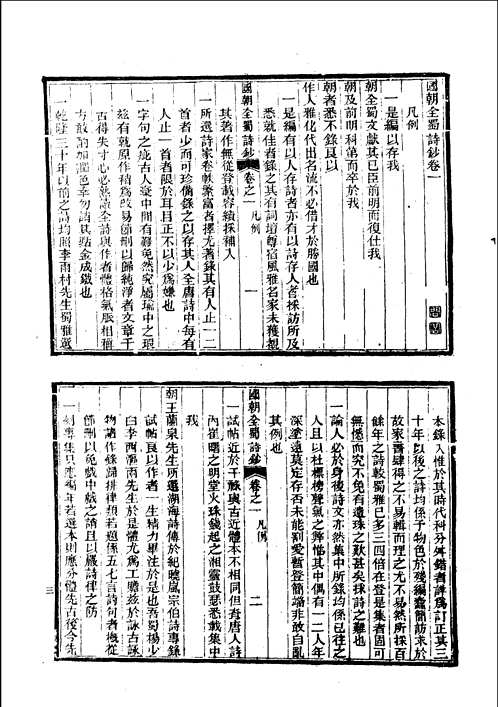 國朝全蜀詩鈔卷一
凡例
一是編以存我
朝全蜀文獻其已臣前明而復仕我
朝及前明科第而卒於我
朝者悉不錄良以
作人雅化代出名流不必借才於勝國也
一是編有以人存詩者亦有以詩存人者採訪所及
悉就佳者錄之其有詞壇尊宿風雅名家未獲覩
國朝全蜀詩鈔 卷之一 凡例 一
其著作無從登載容續採補入
一所選詩家卷帙繁富者擇尤著錄其有人止一二
首者少而可珍備錄之以存其人全唐詩中每有
人止一首者限於耳目正不以少為嫌也
一字句之疵古人集中間有難免然究屬瑜中之瑕
茲有就原作積為改易節刪以歸純淨者文章千
古得失寸心必熟讀全詩與作者體格氣脈相稱
方敢酌加
點金成鐵也
一乾隆三十年以前之詩均照李雨村先生蜀雅選
本錄入惟於其時代科分舛錯者詳為訂正其三
十年以後之詩均係予物色於殘編蠹簡訪求於
故家耆舊得之不易輯而理之尤不易然所採百
餘年之詩較蜀雅已多三四倍在登是集者固可
無憾而究不免有遺珠之歎甚矣採詩之難也
一論人必於身後詩文亦然集中所錄均係已往之
人且以杜標榜聲氣之弊惟其中但有一二人年
深望遠莫定存否未能割愛暫登簡端非敢自亂
其例也
國朝全蜀詩鈔 卷之一 凡例 二
一試帖近於干祿與古近體本不相同但有唐人詩
內崔曙之明堂火珠錢起之湘靈鼓瑟悉載集中
我
朝王蘭泉先生所選湖海詩傳於紀曉嵐宗伯詩專錄
試帖良以作者一生精力畢注於是也吾蜀揚少
白李西漚廓兩先生於是體尤為工贍茲於詠古詠
物諸作錄歸排律類若題係五七言詩句者槪從
節刪以免戲中戲之誚且以嚴詩律之防
三